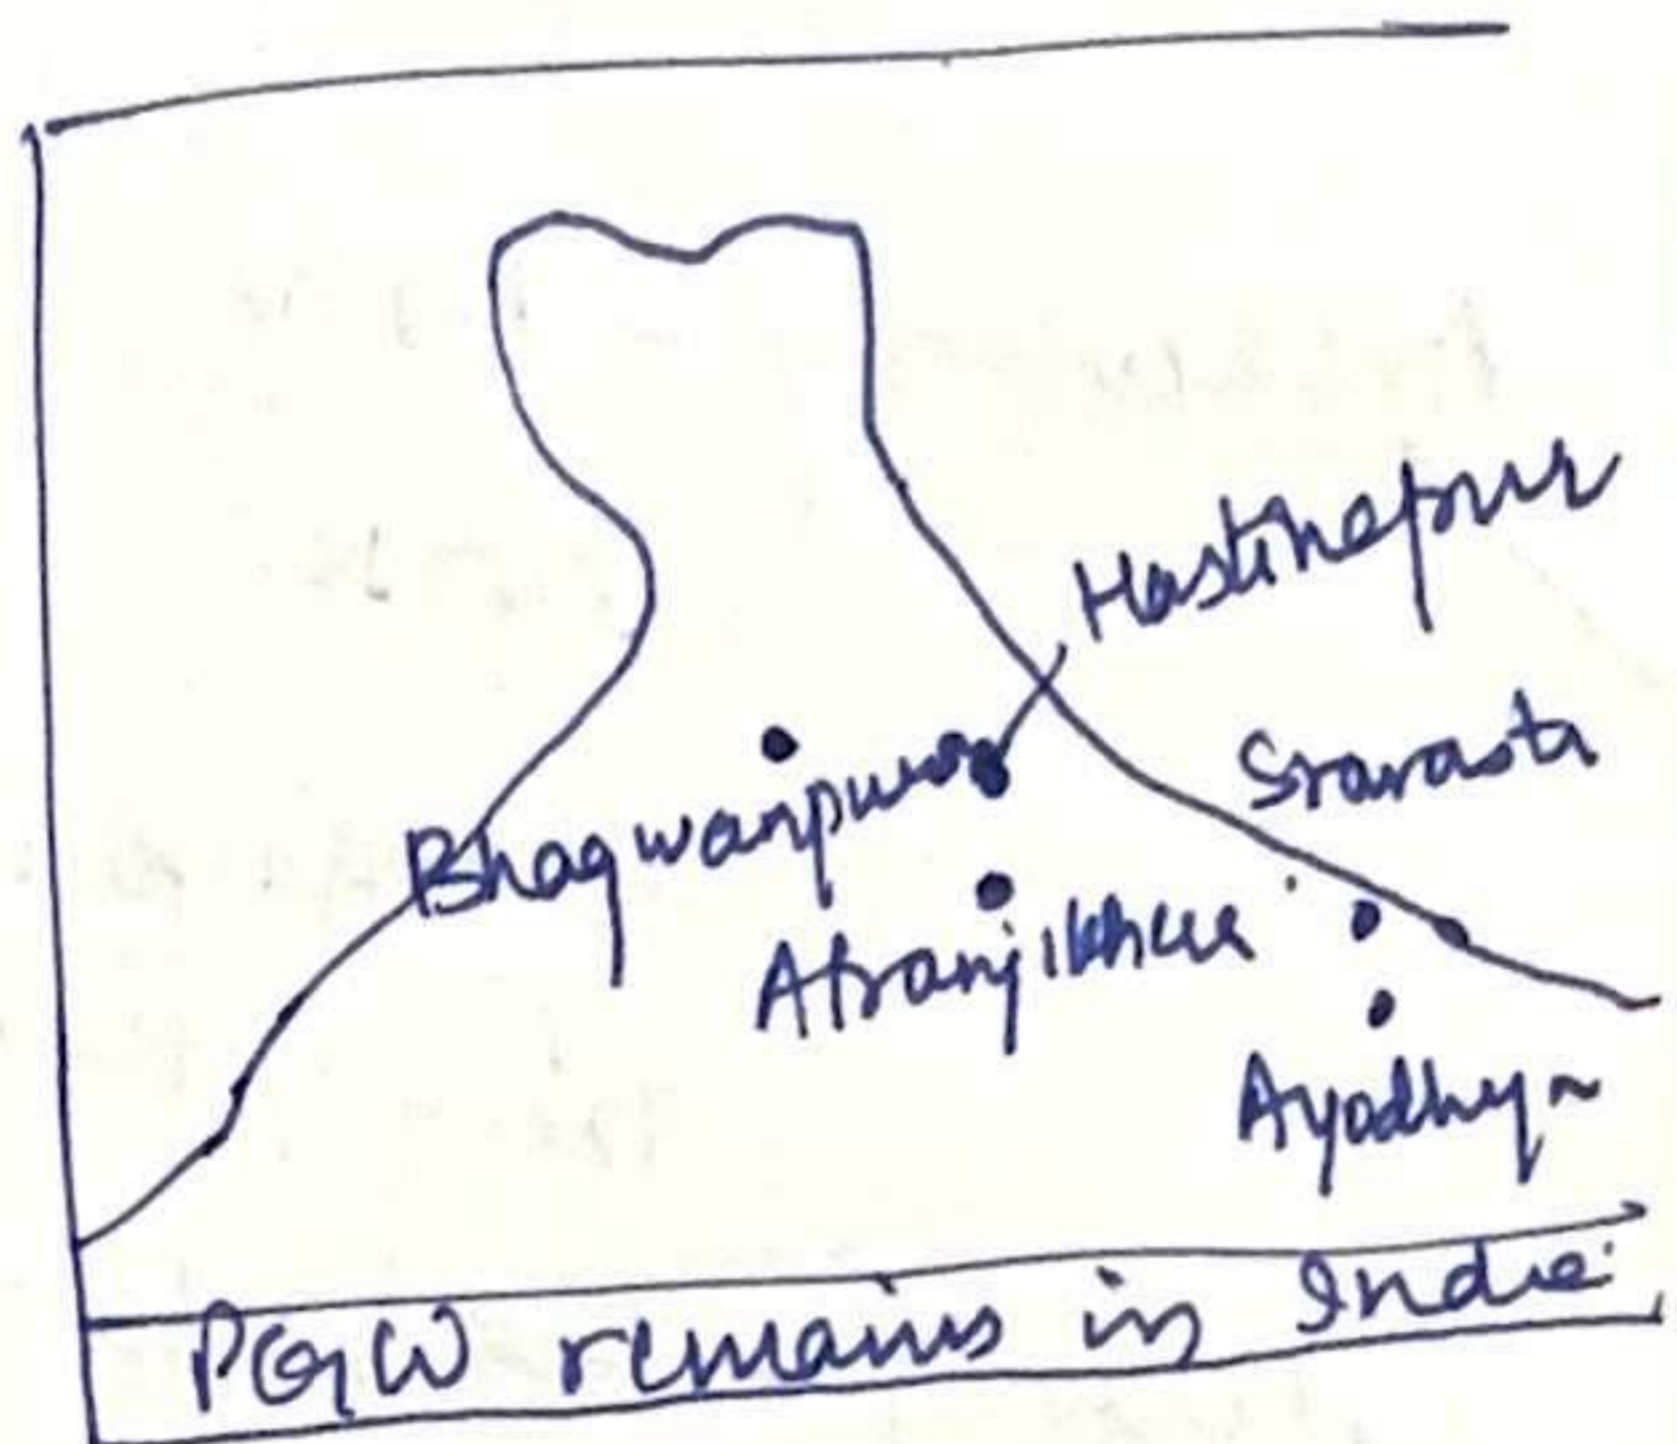 Hastinapur
Sravasti
Bhagwanpura
Atranjikhera
Ayodhya
PGW remains in India